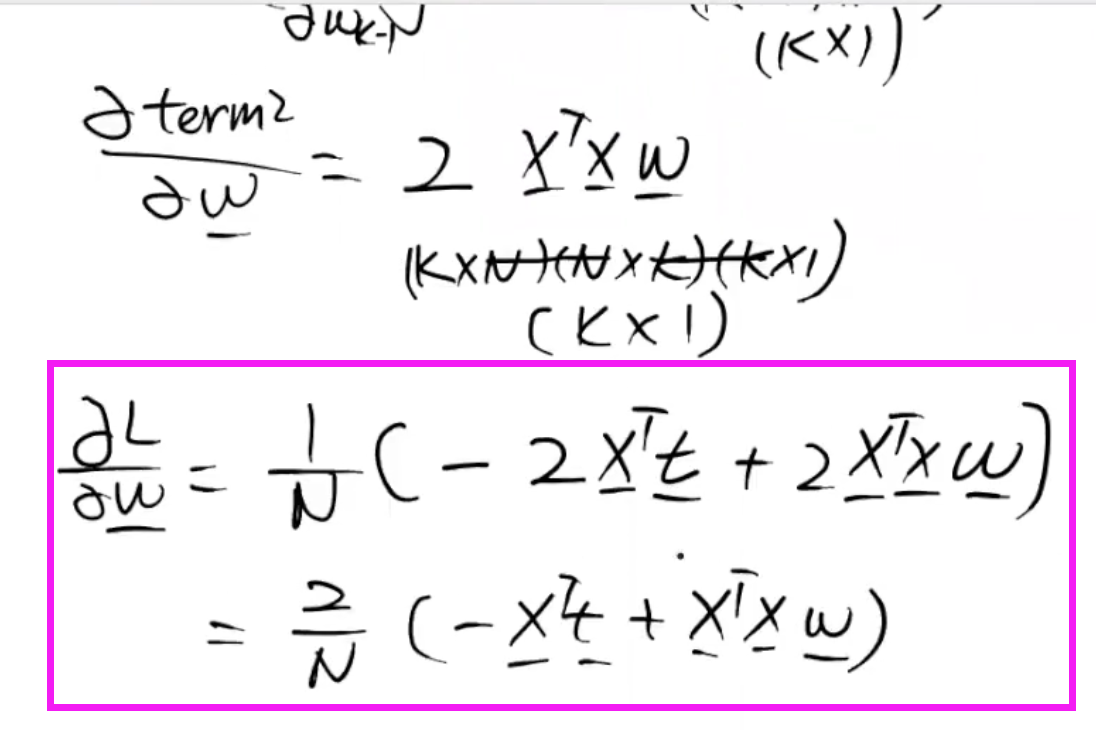 ∂w_{K-1} (K×1)
∂term2/∂w = 2 XᵀX w
(K×N)(N×K)(K×1)
(K×1)
∂L/∂w = 1/N (- 2Xᵀt + 2XᵀXw)
= 2/N (-Xᵀt + XᵀXw)